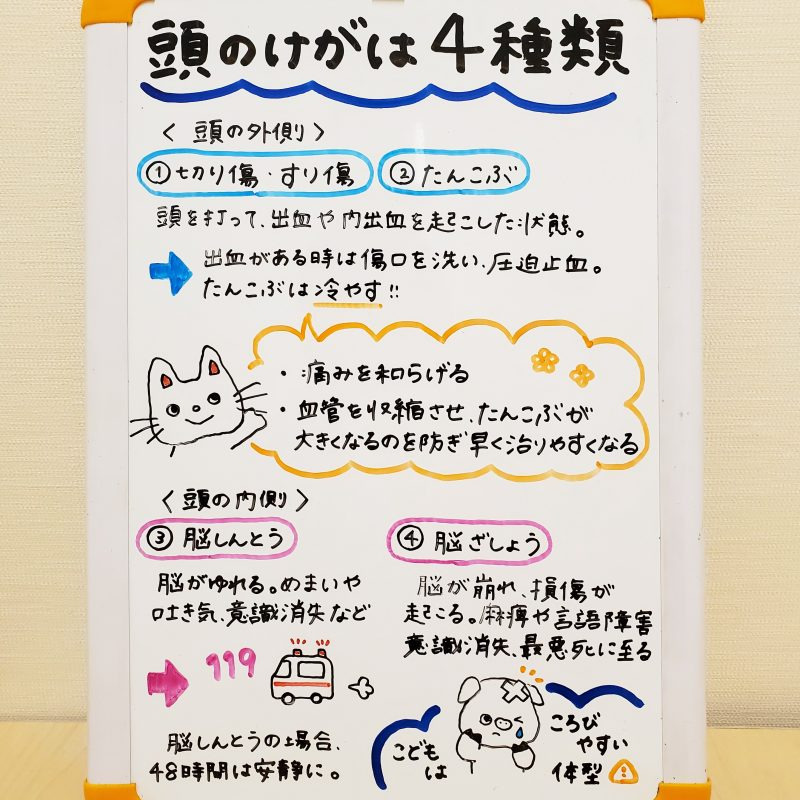 頭のけがは4種類
〈 頭の外側 〉
① 切り傷・すり傷
② たんこぶ
頭を打って、出血や内出血を起こした状態。
出血がある時は傷口を洗い、圧迫止血。
たんこぶは冷やす!!
・痛みを和らげる
・血管を収縮させ、たんこぶが
大きくなるのを防ぎ早く治りやすくなる
〈 頭の内側 〉
③ 脳しんとう
脳がゆれる。めまいや
吐き気、意識消失など
119
脳しんとうの場合、
48時間は安静に。
④ 脳ざしょう
脳が崩れ、損傷が
起こる。麻痺や言語障害
意識消失、最悪死に至る
こども
は
ころび
やすい
体型